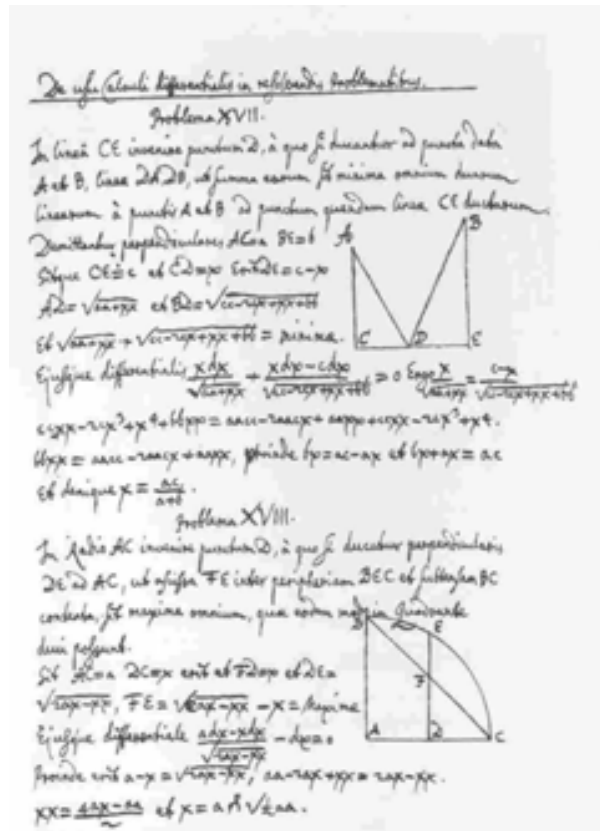 De usu Calculi differentialis in resolvendis Problematibus.
Problema XVII.
In linea CE invenire punctum D, à quo si ducantur ad puncta data
A et B, lineæ DA, DB, ut summa earum sit minima omnium duarum
linearum à punctis A et B ad punctum quoddam lineæ CE ductarum.
Demittantur perpendiculares AC=a BE=b
Sitque CE=c et CD=x Erit DE=c-x
AD=√aa+xx et BD=√cc-2cx+xx+bb
Et √aa+xx + √cc-2cx+xx+bb = minima.
Ejusque differentialis xdx/√aa+xx + xdx-cdx/√cc-2cx+xx+bb = 0 Ergo x/√aa+xx = c-x/√cc-2cx+xx+bb
ccxx-2cx³+x⁴+bbxx = aacc-2aacx+aaxx+ccxx-2cx³+x⁴.
bbxx = aacc-2aacx+aaxx, proinde bx=ac-ax et bx+ax=ac
Et denique x = ac/a+b.
Problema XVIII.
In Radio AC invenire punctum D, à quo si ducatur perpendicularis
DE ad AC, ut FE inter peripheriam BEC et subtensam BC
contenta, sit maxima omnium, quæ eodem in Quadrante
duci possunt.
Sit AC=a DC=x erit et FD=x et DE=
√2ax-xx, FE=√2ax-xx - x = Maxima
Ejusque differentiale adx-xdx/√2ax-xx - dx=0
Proinde erit a-x=√2ax-xx, aa-2ax+xx=2ax-xx.
xx = 4ax-aa/2 et x=a √½aa.
A
B
C
D
E
B
E
F
A
D
C